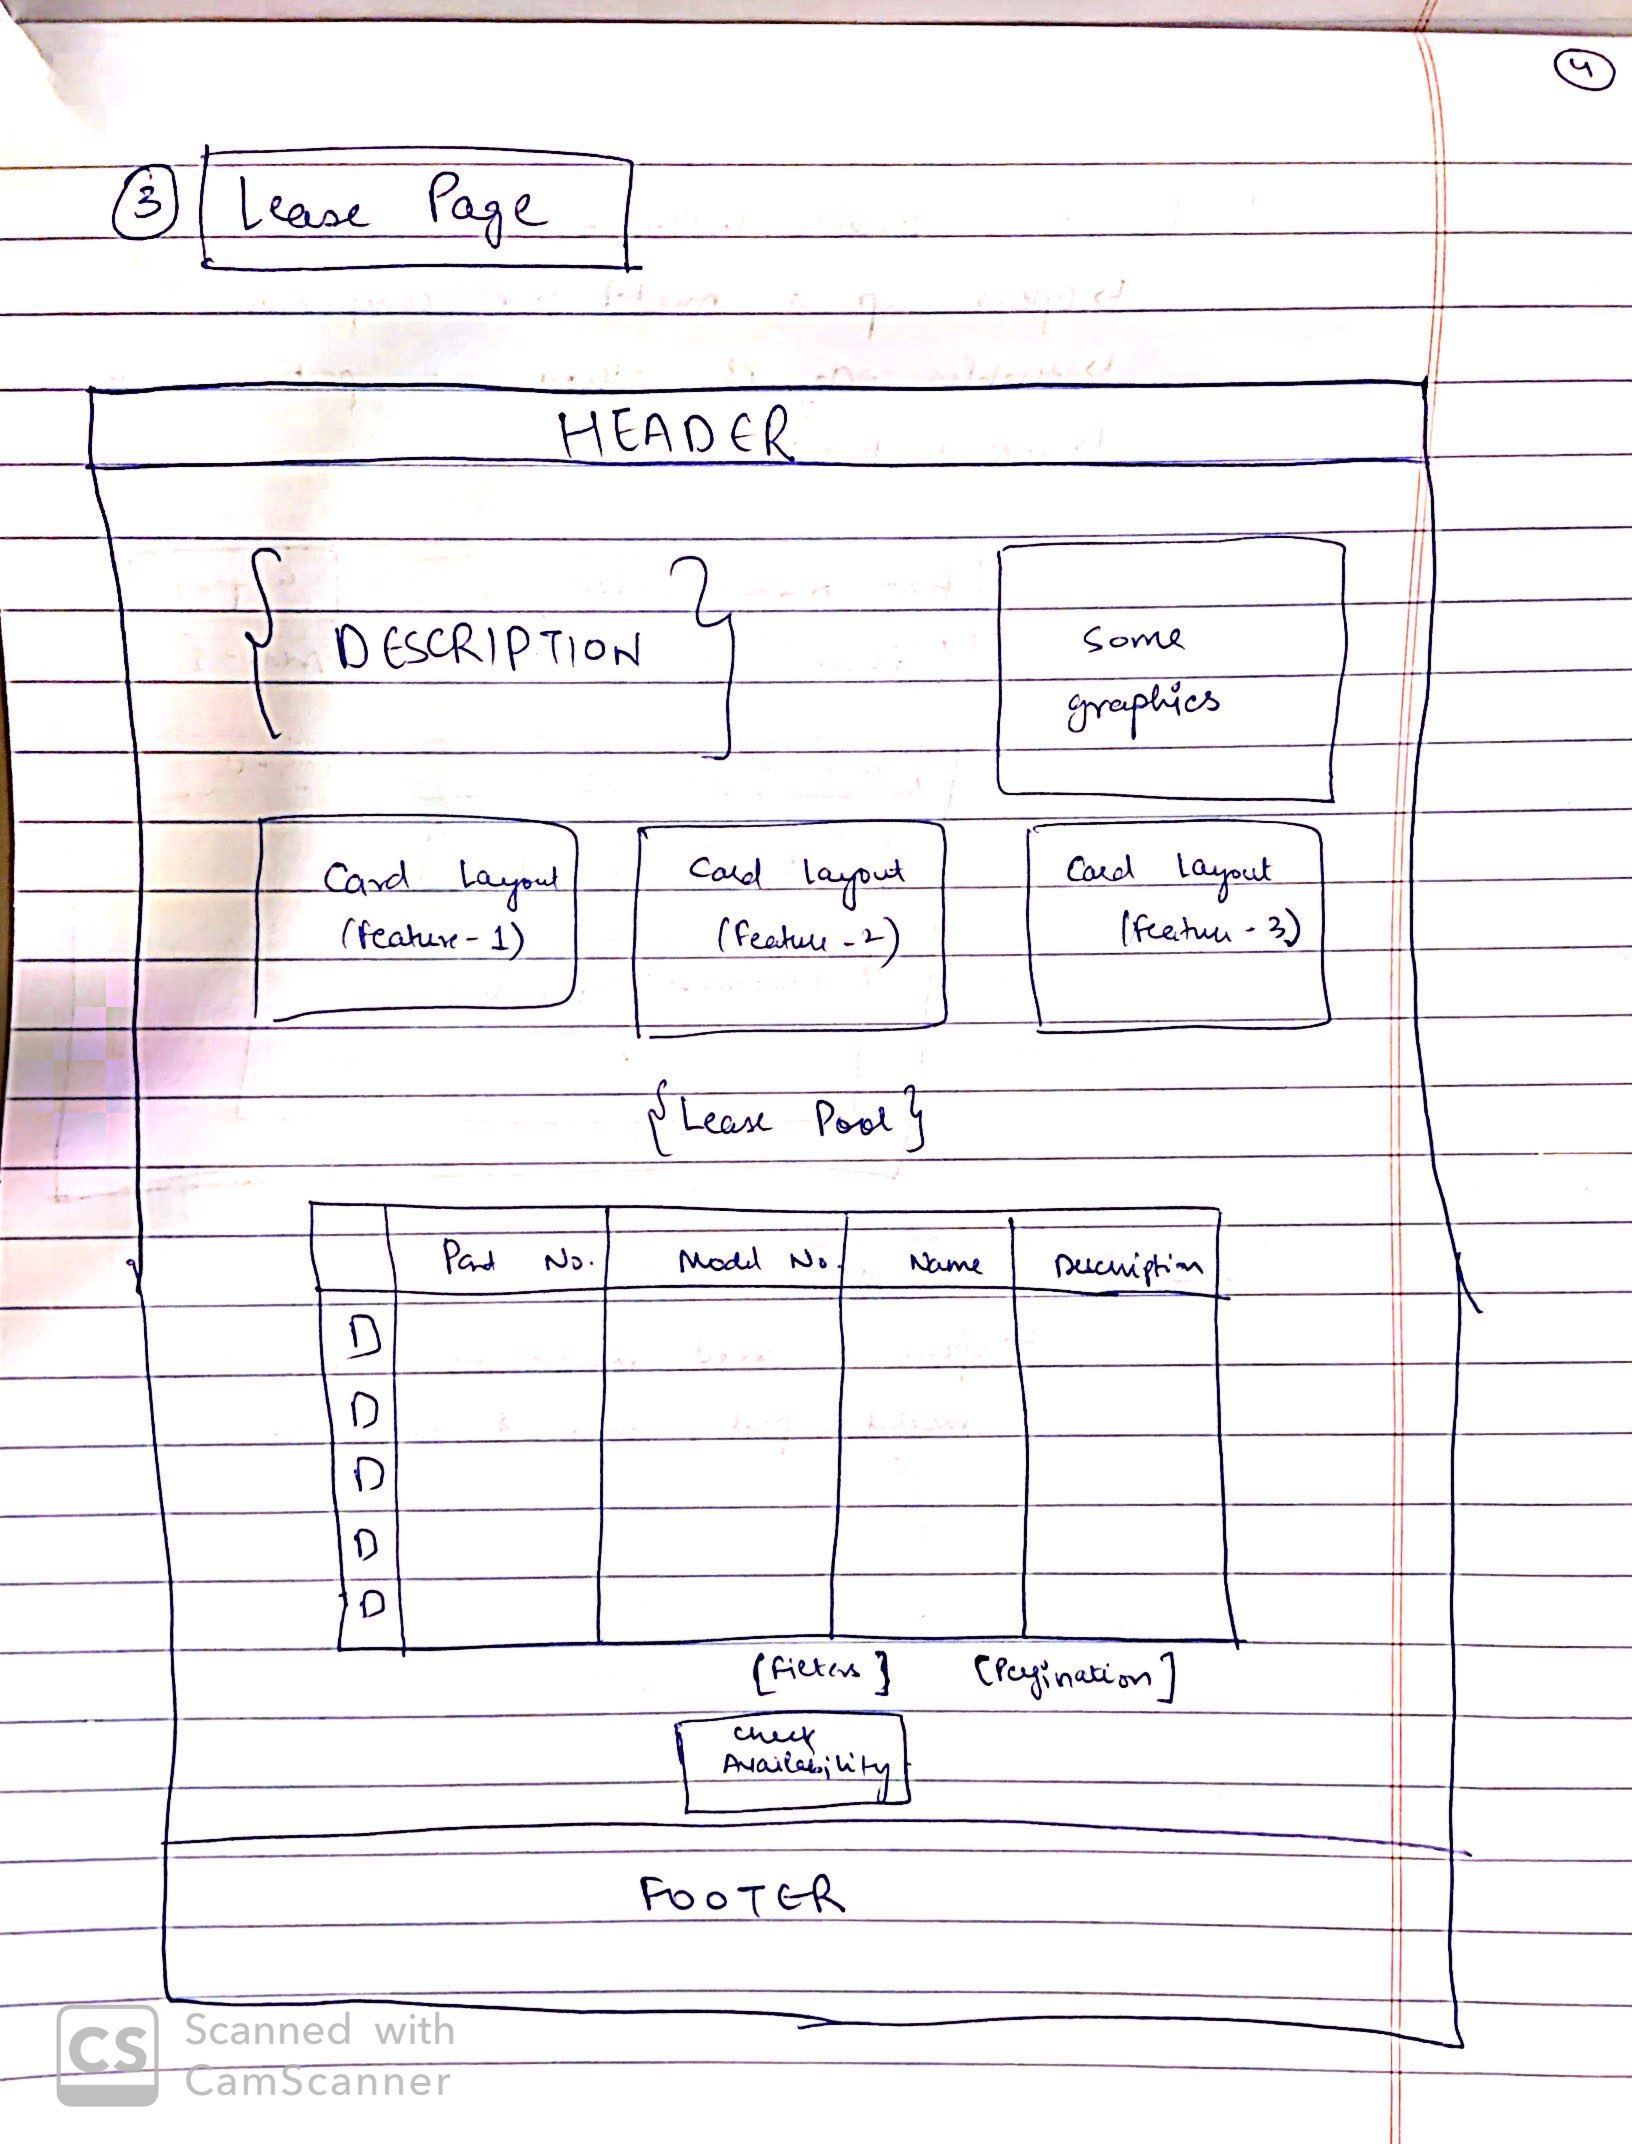 4
3 Lease Page
HEADER
{ DESCRIPTION }
some
graphics
Card Layout
(feature-1)
Card layout
(feature-2)
Card layout
(feature-3)
{Lease Pool}
Part No. Model No. Name Description
D
D
D
D
D
[Filters] [Pagination]
Check
Availability
FOOTER
CS Scanned with
CamScanner